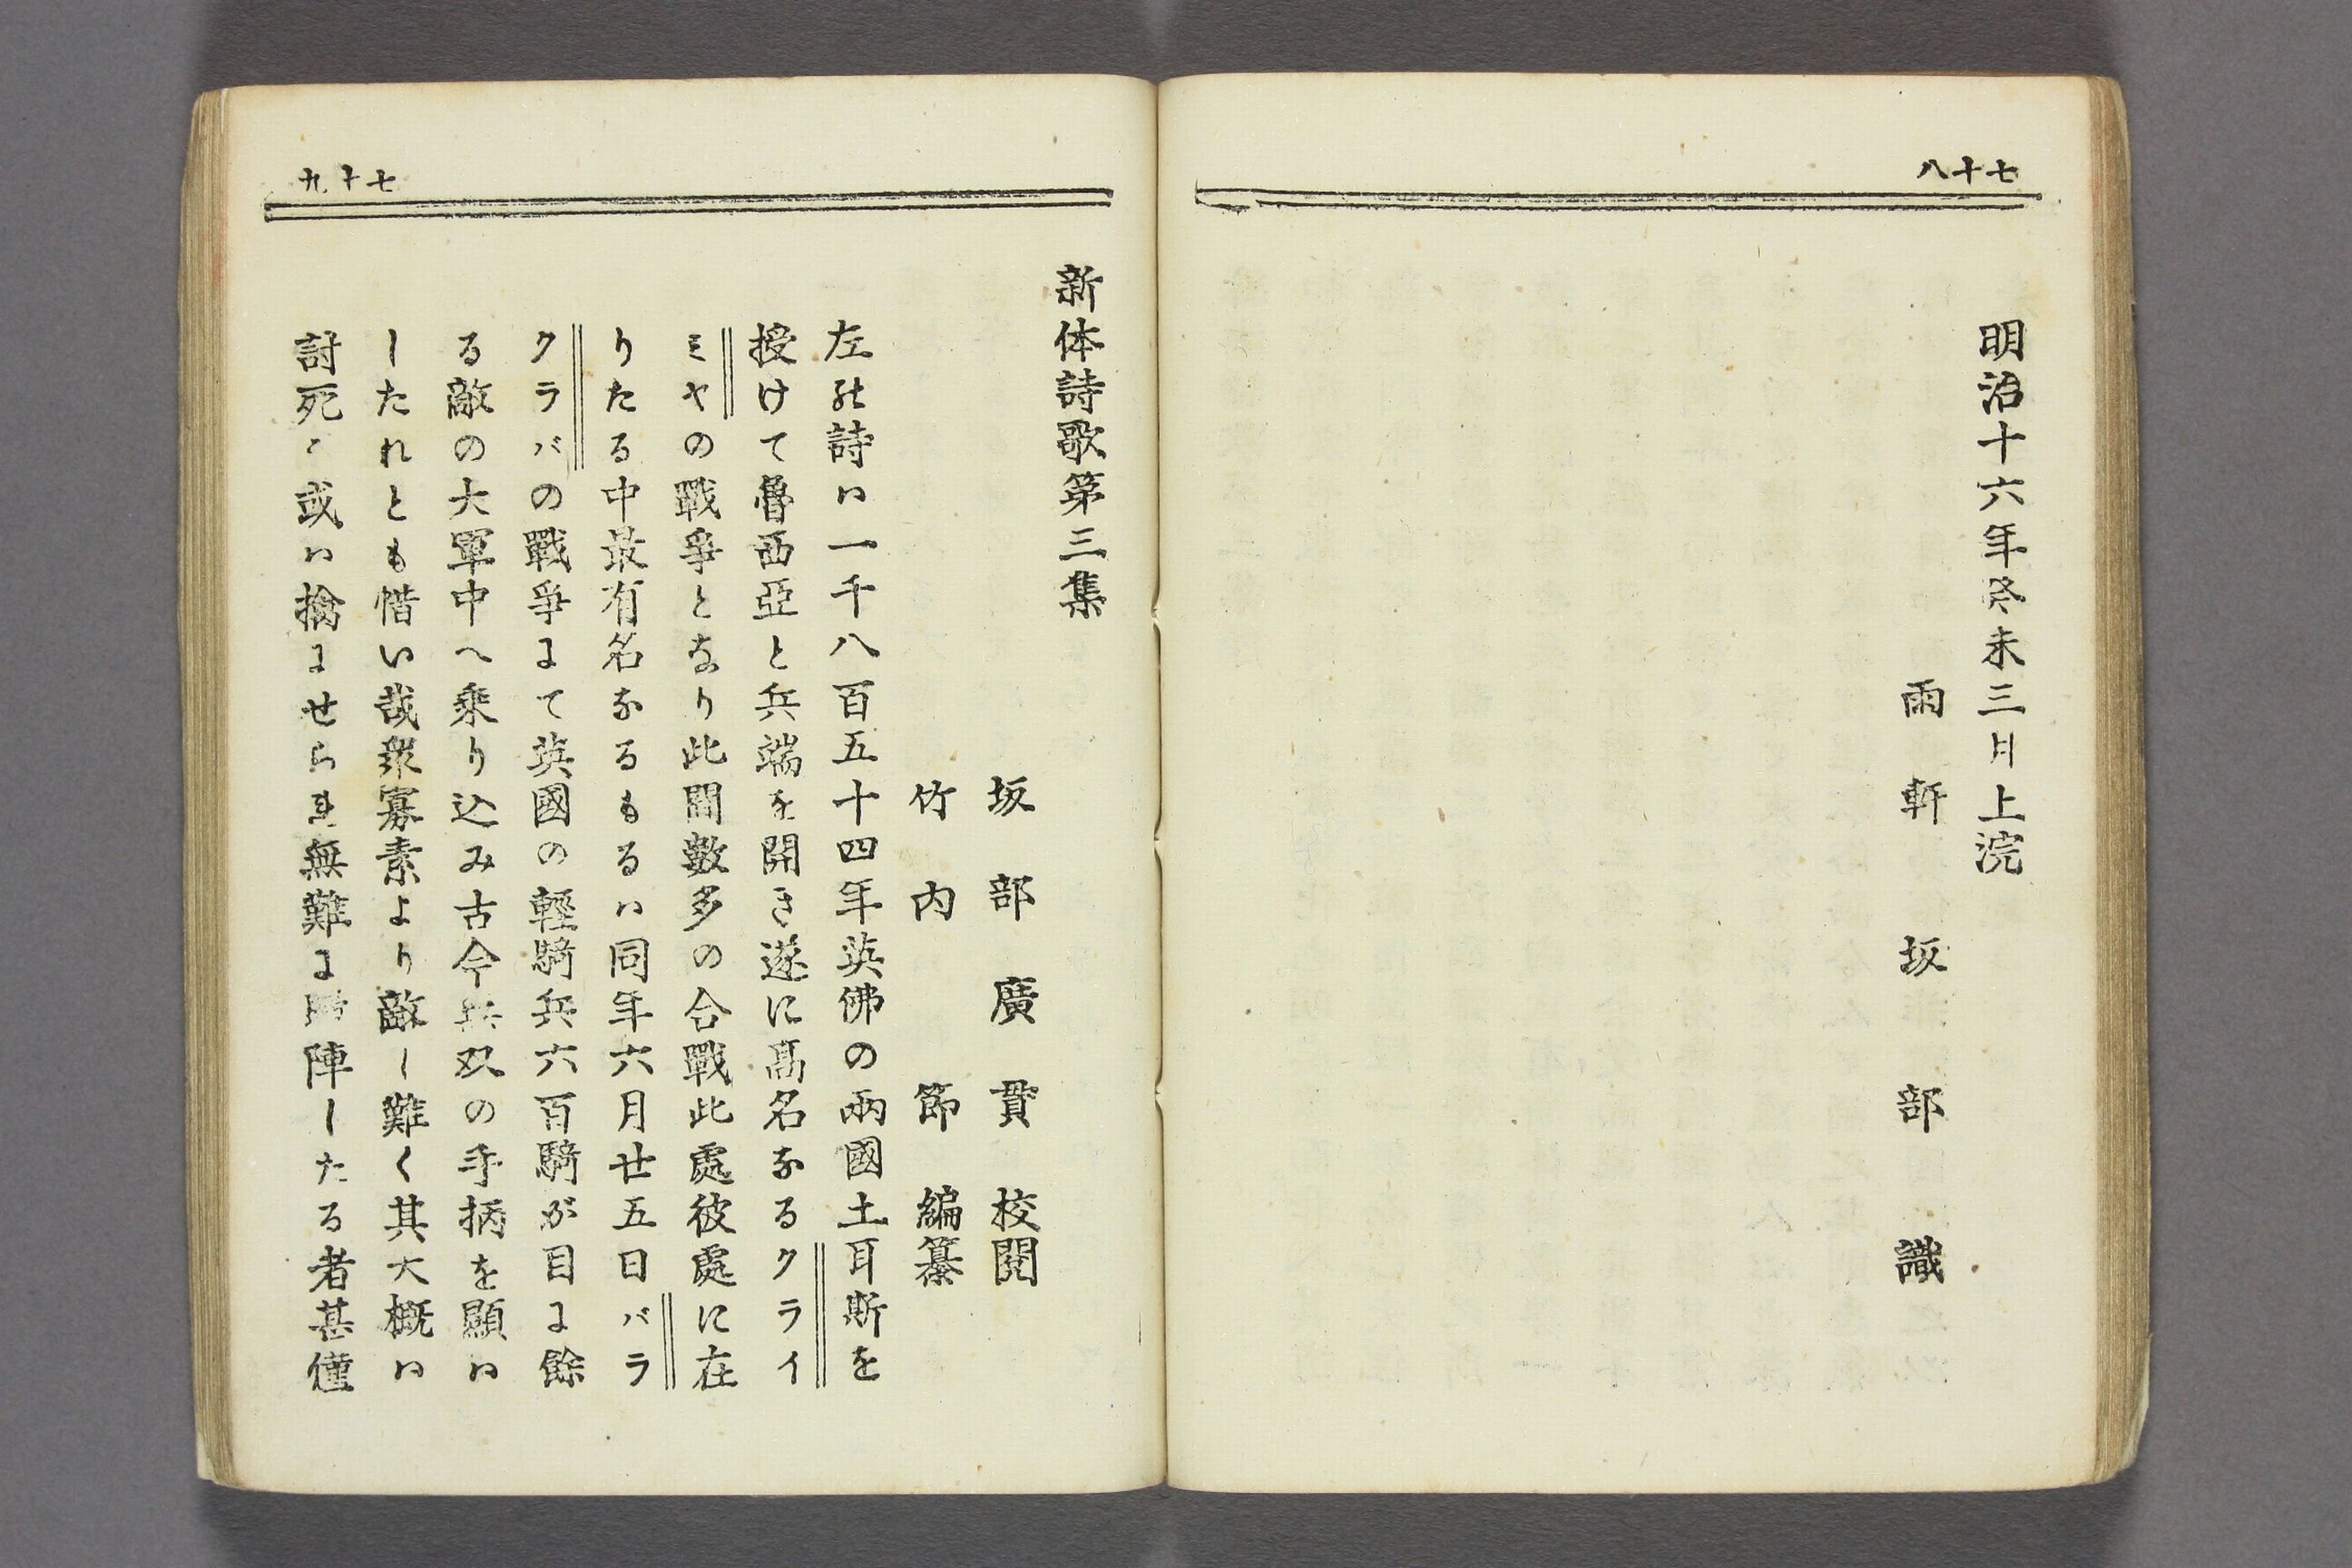 七十八
明治十六年癸未三月上浣
雨軒 坂部 識
七十九
新体詩歌第三集
坂部廣貫 校閲
竹内節 編纂
左の詩ハ一千八百五十四年英佛の兩國土耳斯を
授けて魯西亞と兵端を開き遂に高名なるクライ
ミヤの戰爭となり此間數多の合戰此處彼處に在
りたる中最有名なるもるハ同年六月廿五日バラ
クラバの戰爭にて英國の輕騎兵六百騎が目に餘
る敵の大軍中へ乘り込み古今無双の手柄を顯ハ
したれとも惜い哉衆寡素より敵し難く其大概ハ
討死し或ハ擒にせられ無難に歸陣したる者甚僅